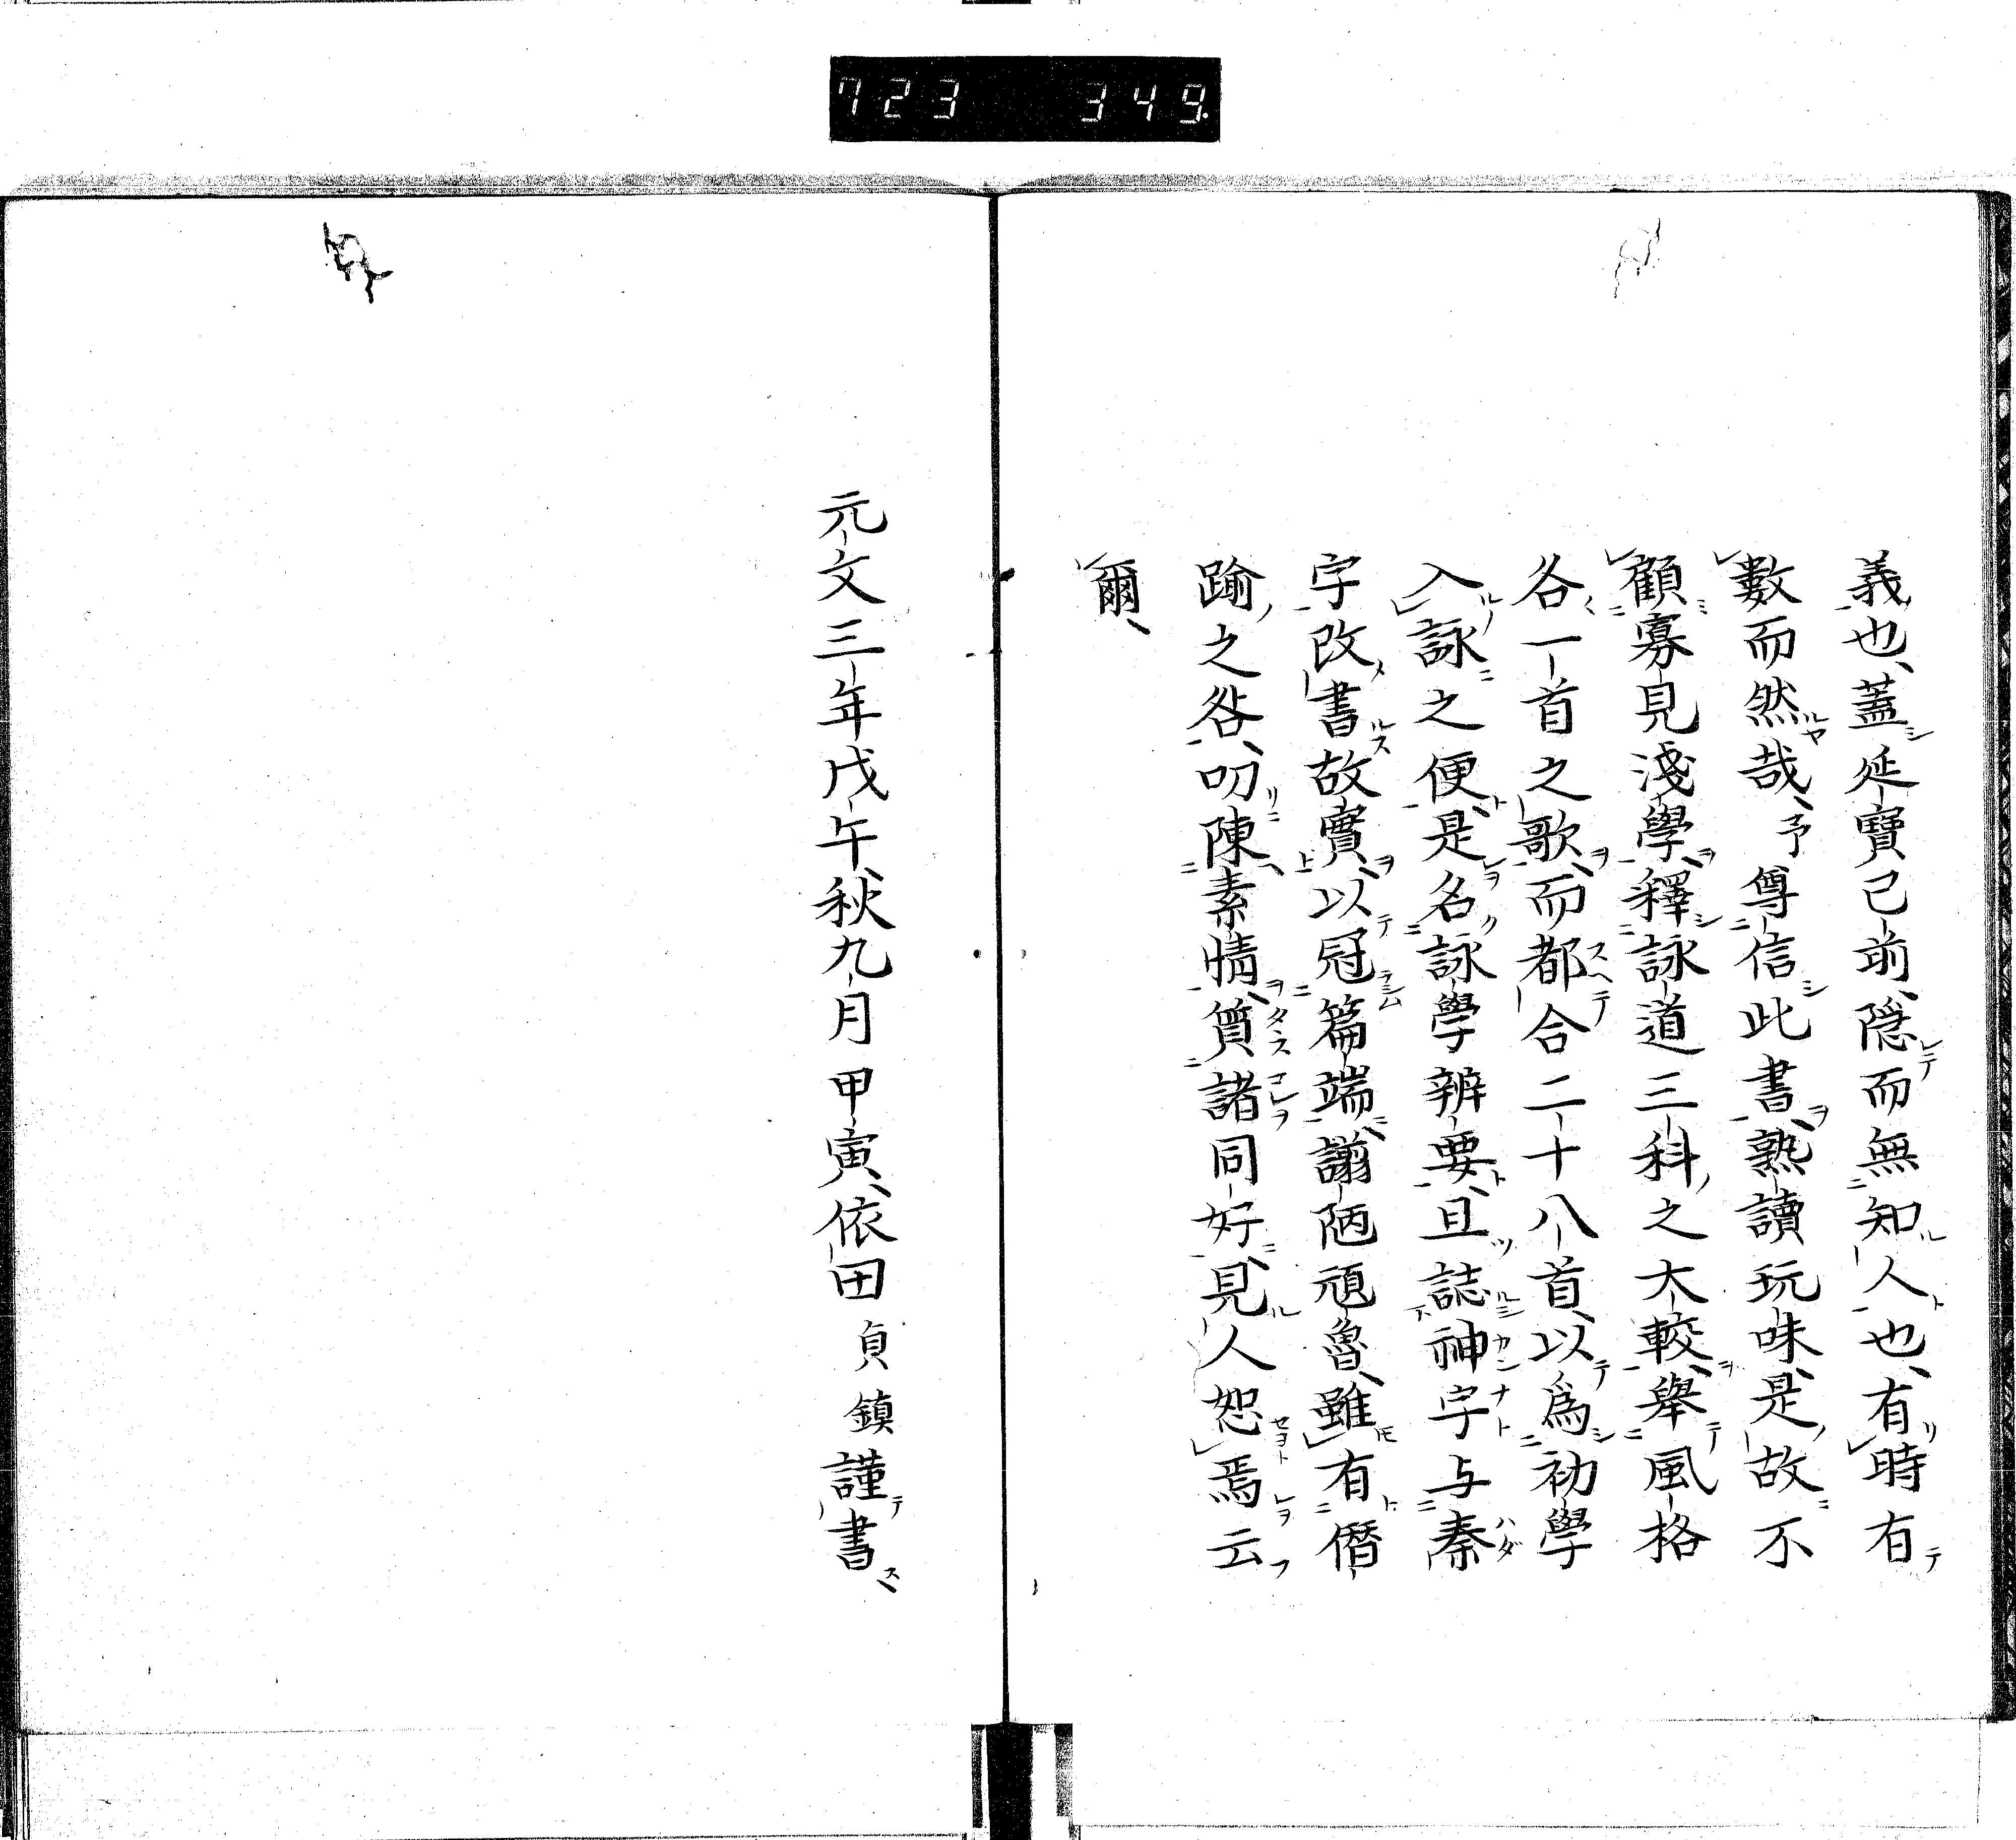 723 349
義也、蓋延寶已前、隠而無知人也、有時有
數而然哉、予尊信此書、熟讀玩味、是故不
顧寡見淺學、釋詠道三科之大較、舉風格
各一首之歌、而都合二十八首、以爲初學
入詠之便、是名詠學辨要、且誌神字与秦
字改書故實、以冠篇端、謭陋頑魯、雖有僭
踰之咎、叨陳素情、質諸同好、見人恕焉云
爾、
元文三年戊午、秋九月甲寅、依田貞鎮謹書